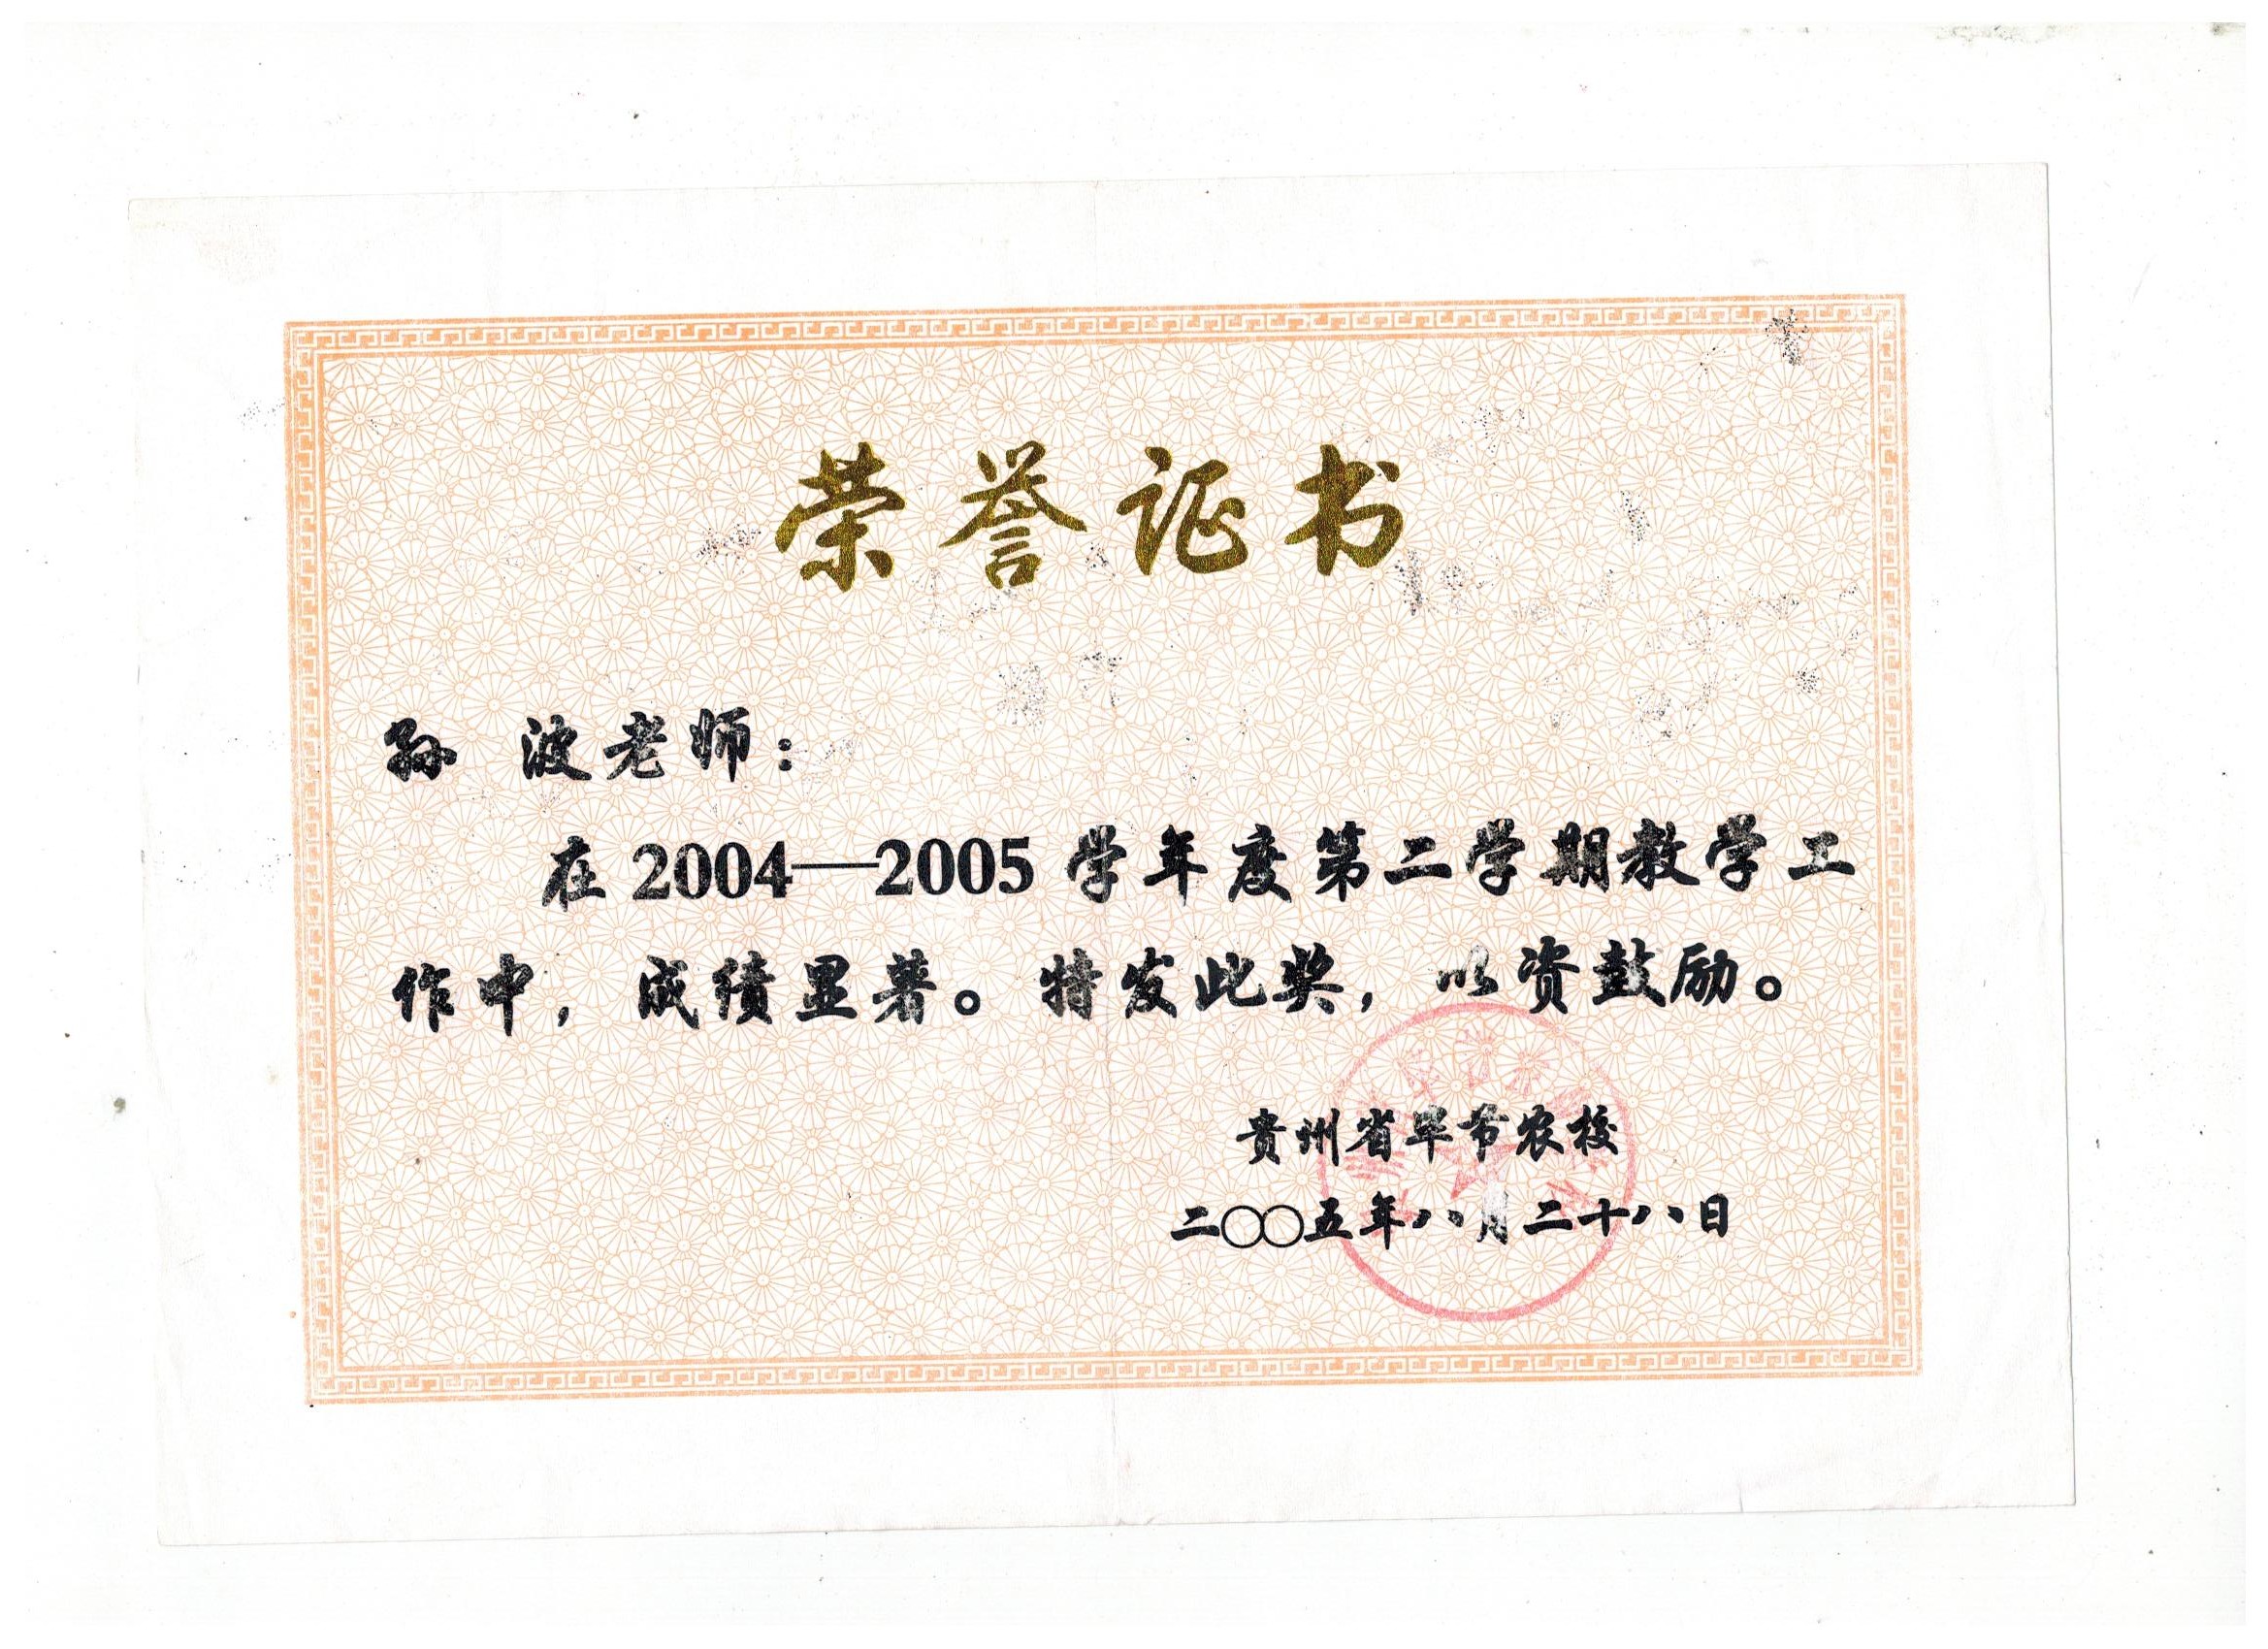 荣誉证书
孙 波老师：
在 2004—2005 学年度第二学期教学工
作中，成绩显著。特发此奖，以资鼓励。
贵州省毕节农校
二〇〇五年八月二十八日